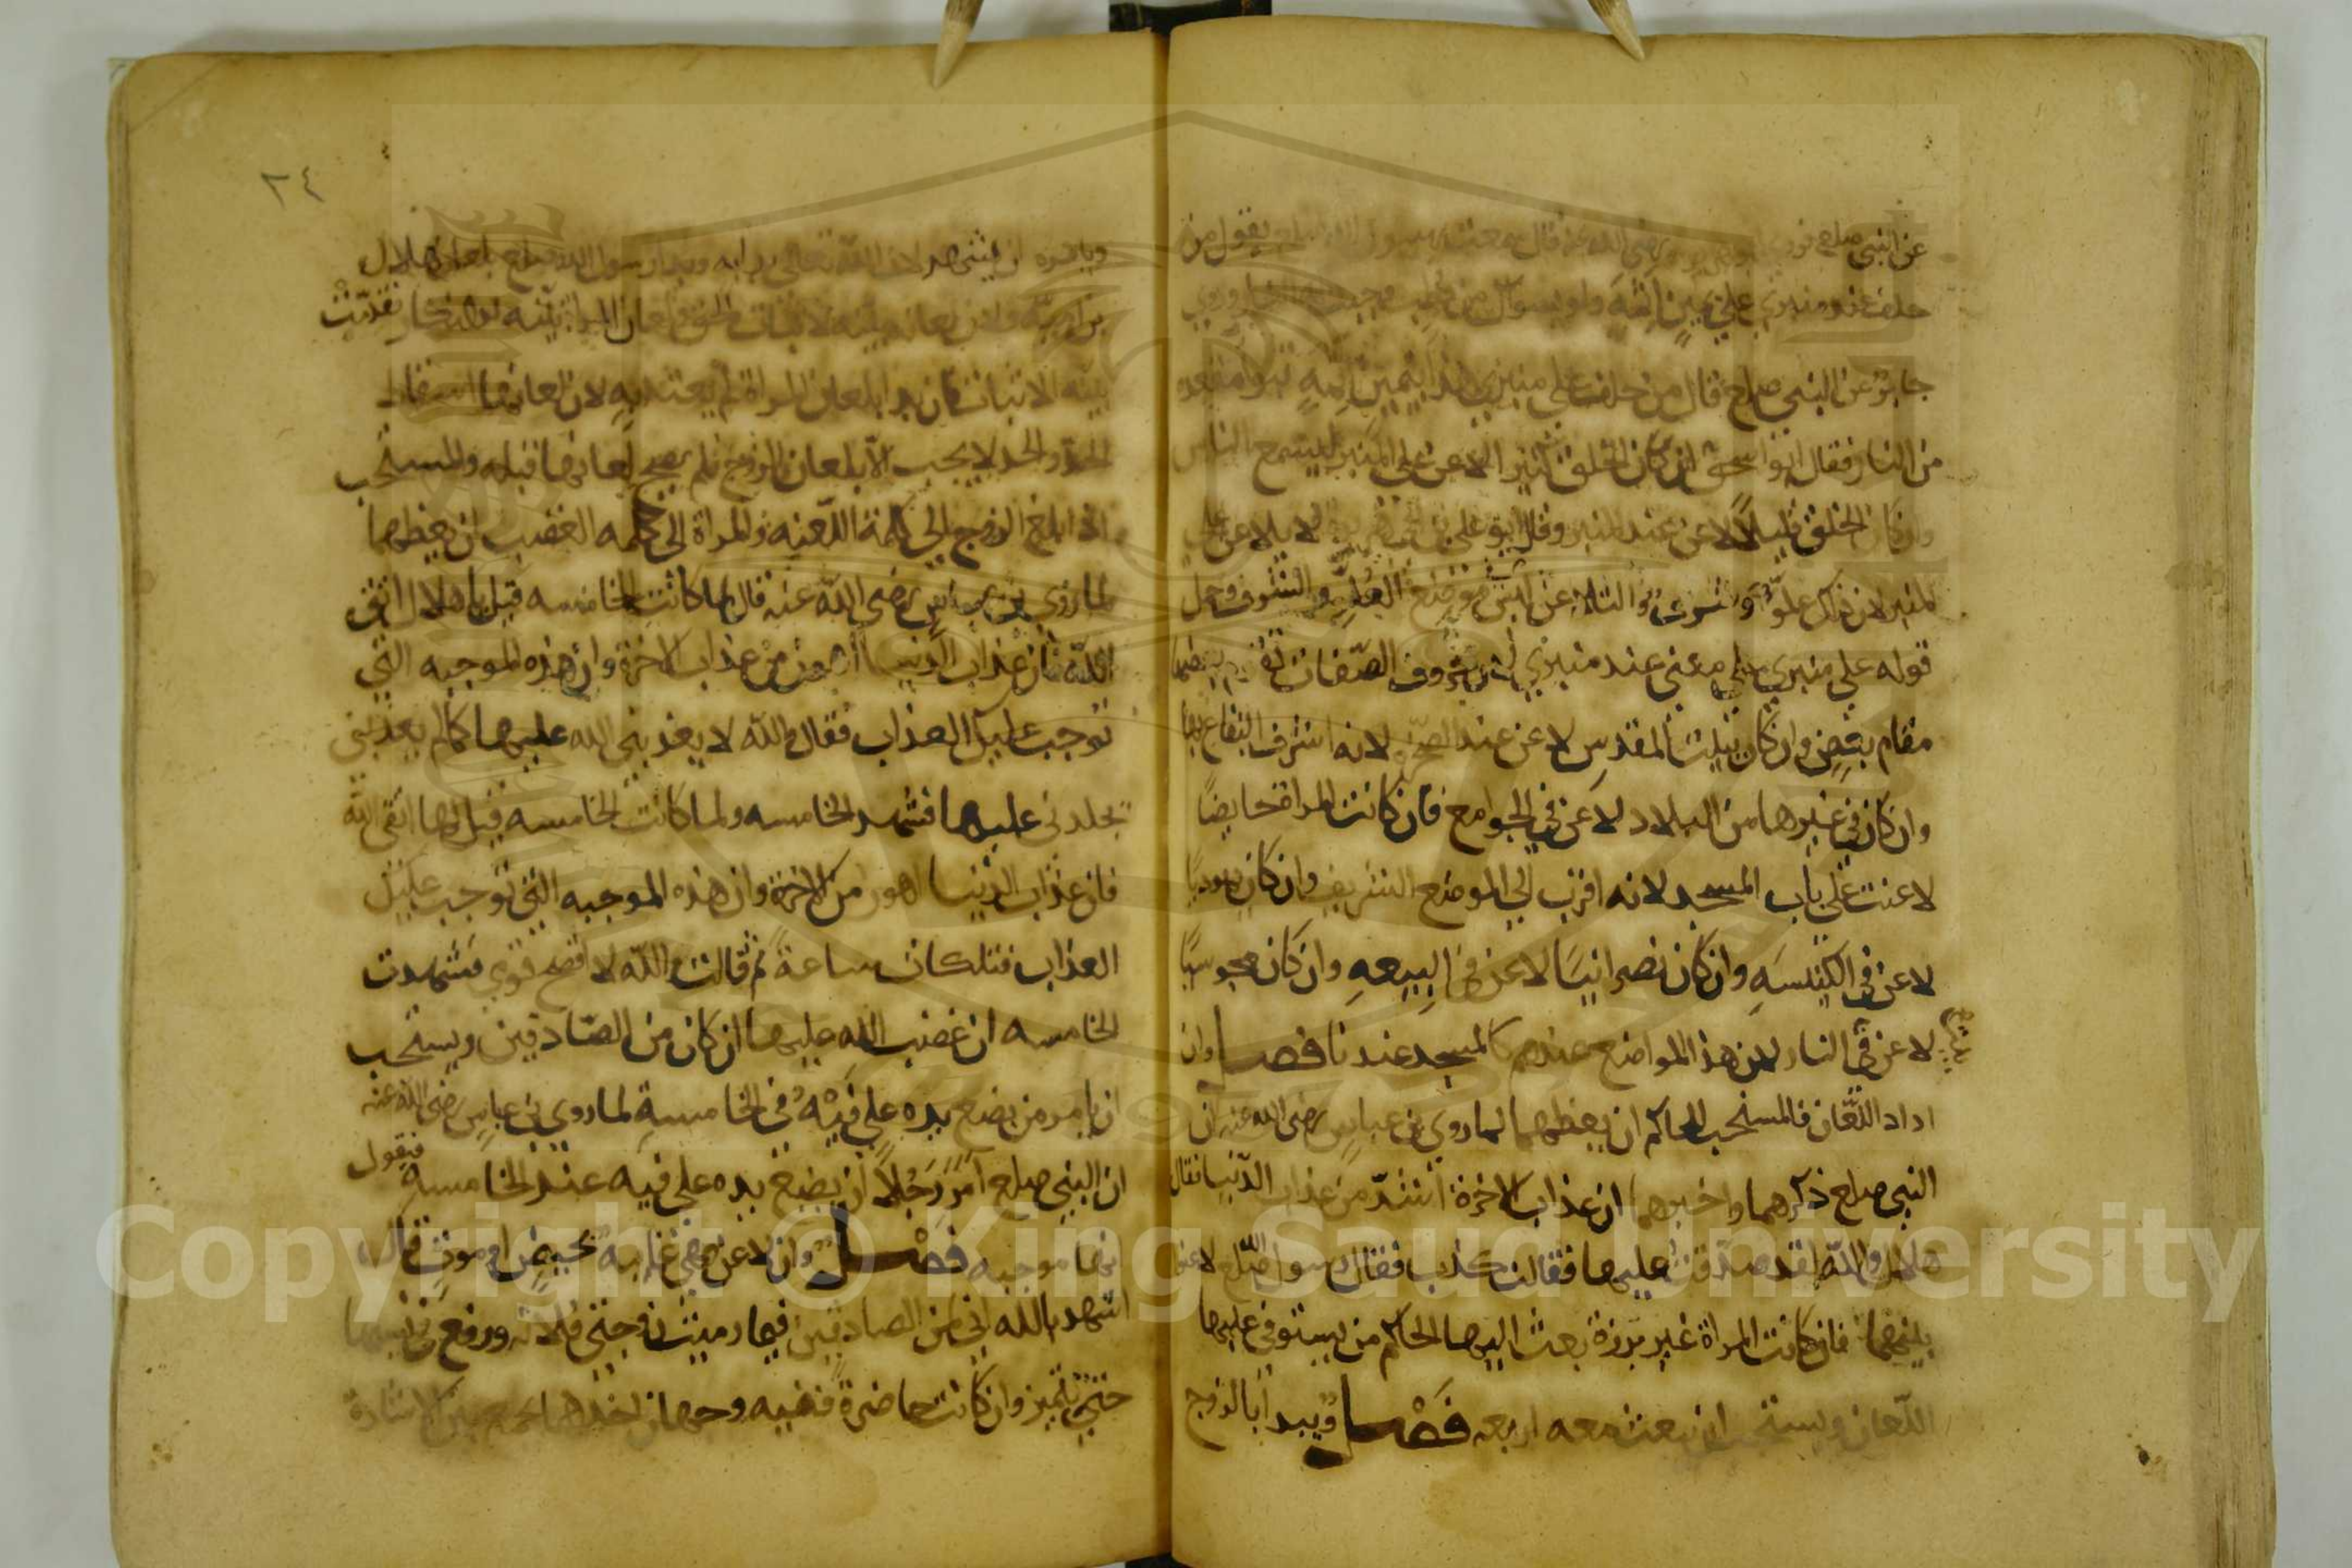 عن النبي صلعم فروي ابو هريرة رضي الله عنه قال سمعت رسول الله صلعم يقول من
حلف عند منبري علي يمين اثمه ولو بسواك من رطب وجبت له النار وروي
جابر عن النبي صلعم قال من حلف علي منبري هذا بيمين اثمه تبوا مقعده
من النار فقال ابو اسحق ان كان الخلق كثيرا لاعن علي المنبر ليسمع الناس
وان كان الخلق قليلا لاعن عند المنبر وقال ابو علي بن ابي هريرة لا يلاعن علي
المنبر لان ذلك علو وشرف والملاعن ليس في موضع العلو والشرف وحمل
قوله علي منبري علي معني عند منبري لان حروف الصفات تقوم بعضها
مقام بعض وان كان ببيت المقدس لاعن عند الصخرة لانه اشرف البقاع بها
وان كان في غيرها من البلاد لاعن في الجوامع فان كانت المراة حايضا
لاعنت علي باب المسجد لانه اقرب الي الموضع الشريف وان كان يهوديا
لاعن في الكنيسه وان كان نصرانيا لاعن في البيعه وان كان مجوسيا
لاعن في النار لان هذا المواضع عندهم كالمسجد عندنا فصل وان
اداد اللعان فالمستحب للحاكم ان يعظهما لما روي بن عباس رضي الله عنه ان
النبي صلعم ذكرهما واخبرهما ان عذاب الاخرة اشد من عذاب الدنيا فقال
هلال والله لقد صدقت عليها فقالت كذب فقال رسول الله صلعم لاعنوا
بينهما فان كانت المراة غير برزة بعث اليها الحاكم من يستوفي عليها
اللعان ويستحب ان يبعث معه اربعه فصل ويبدا بالزوج
٢٤
ويامره ان يشهد لان الله تعالي بدا به وبدا رسول الله صلعم بلعان هلال
بن امية ولان لعانه بينه لاثبات الحق ولعان المراة بينه لانكار فقدمت
بينه الاثبات فان بدا بلعان المراة لم يعتد به لان لعانها اسقاط
الحد والحد لا يجب الا بلعان الزوج فلم يصح لعانها قبله والمستحب
اذا بلغ الزوج الي كلمة اللعنه والمراة الي كلمه الغضب ان يعظهما
لما روي بن عباس رضي الله عنه قال لما كانت الخامسه قيل يا هلال اتق
الله فان عذاب الدنيا اهون من عذاب الاخرة وان هذه الموجبه التي
توجب عليك العذاب فقال والله لا يعذبني الله عليها كما لم يعذبني
يجلدني عليها فشهد الخامسه ولما كانت الخامسه قيل لها اتقي الله
فان عذاب الدنيا اهون من الاخرة وان هذه الموجبه التي توجب عليك
العذاب فتلكات ساعة ثم قالت والله لا افضح قومي فشهدت
الخامسه ان غضب الله عليها ان كان من الصادقين ويستحب
ان يامر من يضع يده علي فيه في الخامسة لما روي بن عباس رضي الله عنه
ان النبي صلعم امر رجلا ان يضع يده علي فيه عند الخامسه فيقول
انها موجبه فصل وان لاعن وهي غايبه لحيض او موت قال
اشهد بالله اني لمن الصادقين فيما رميت زوجتي فلانه ورفع في نسبها
حتي تتميز وان كانت حاضرة ففيه وجهان احدهما يجمع بين الاشارة